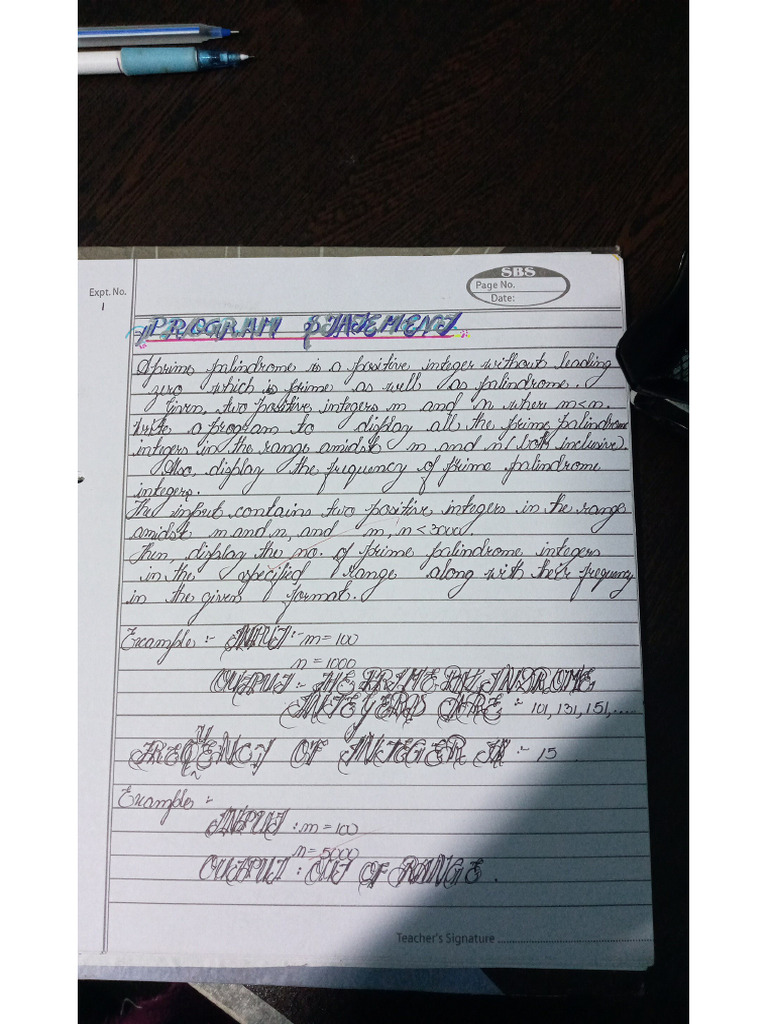 SBS
Page No.
Date:
Expt. No.
1
PROGRAM STATEMENT
A prime palindrome is a positive integer without leading
zero which is prime as well as palindrome.
Given, two positive integers m and n where m<n.
Write a program to display all the prime palindrome
integers in the range amidst m and n (both inclusive).
Also, display the frequency of prime palindrome
integers.
The input contains two positive integers in the range
amidst m and n, and m, n < 3000.
Then, display the no. of prime palindrome integers
in the specified range along with their frequency
in the given format.
Example :- INPUT :- m = 100
n = 1000
OUTPUT :- THE PRIME PALINDROME
INTEGERS ARE :- 101, 131, 151, ....
FREQUENCY OF INTEGER IS :- 15
Example :-
INPUT : m = 100
n = 5000
OUTPUT : OUT OF RANGE.
Teacher's Signature ....................